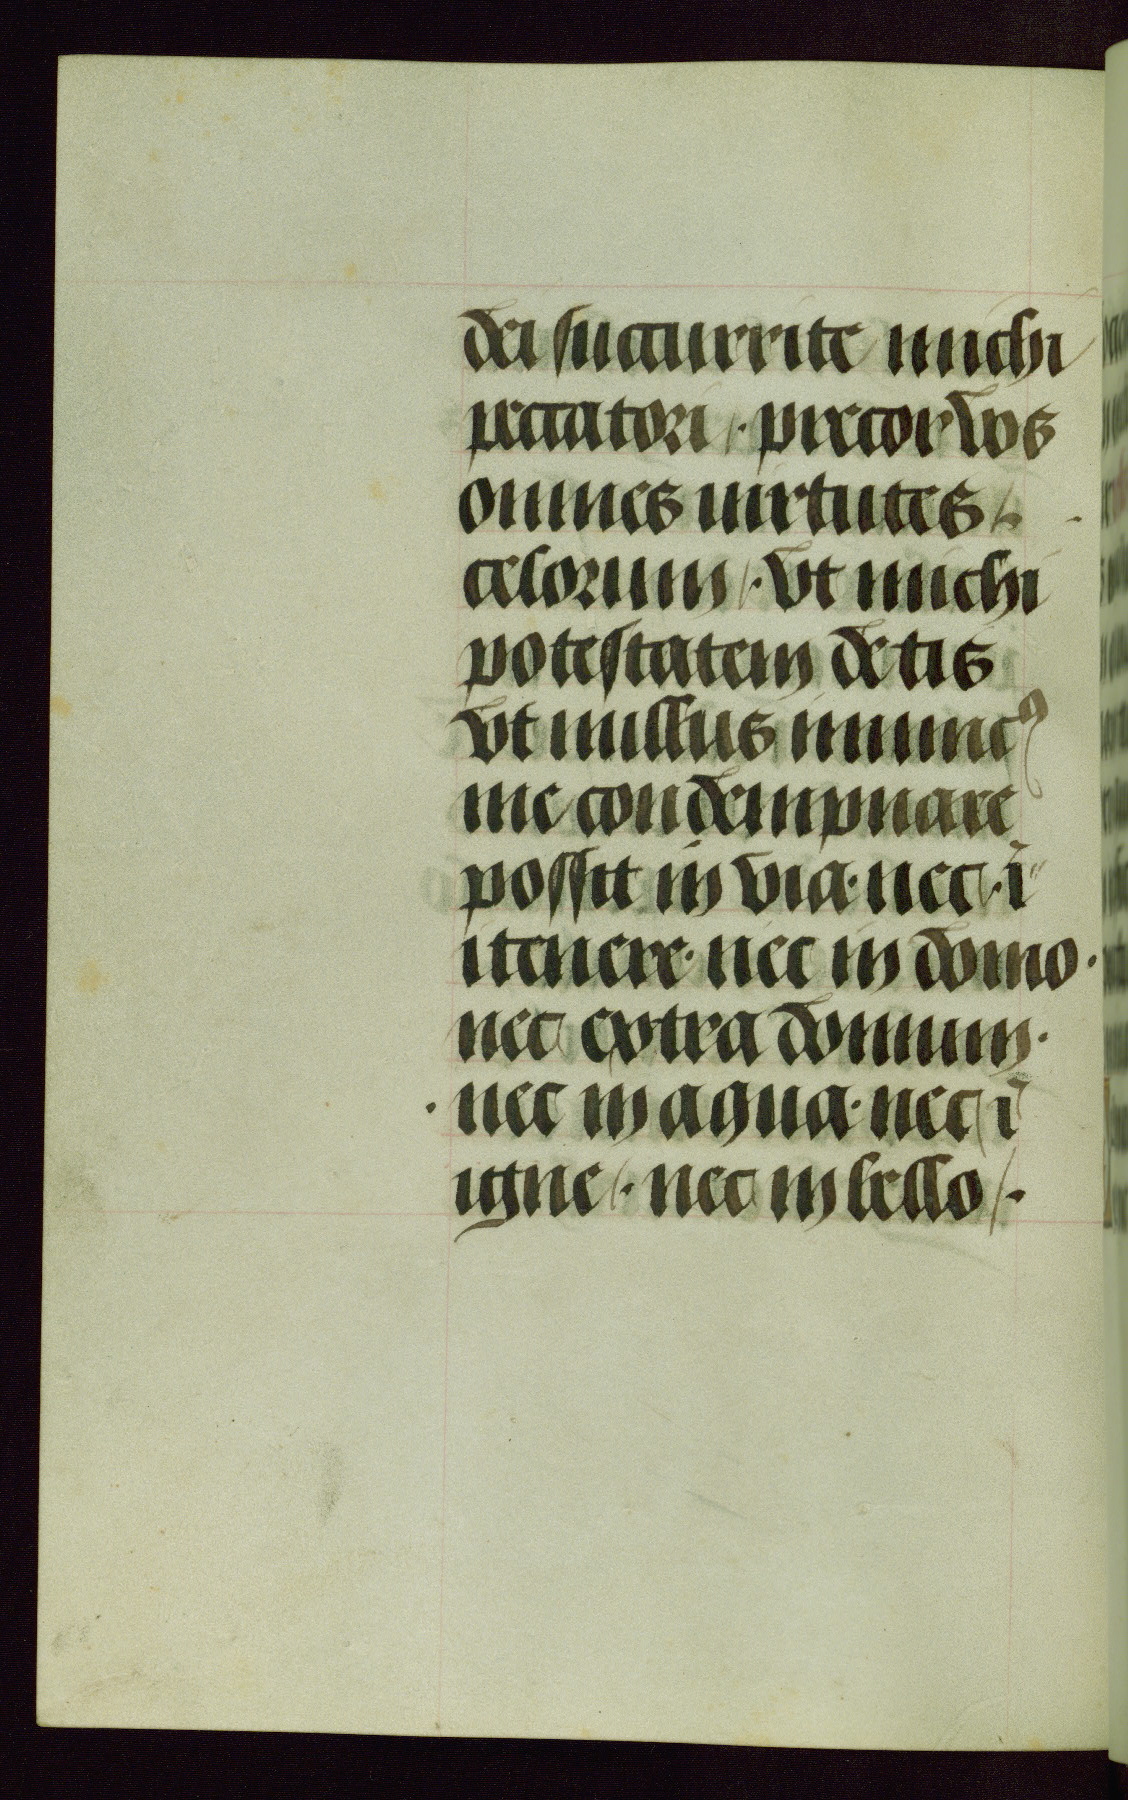 dei succurrite michi
peccatori /· precor vos
omnes uirtutes /·
celorum /· vt michi
potestatem detis
vt nullus inimicꝰ
me condempnare
possit in via· nec· ī
itenere· nec in domo·
nec extra domum·
· nec in aqua· nec ī
igne /· nec in bello /·